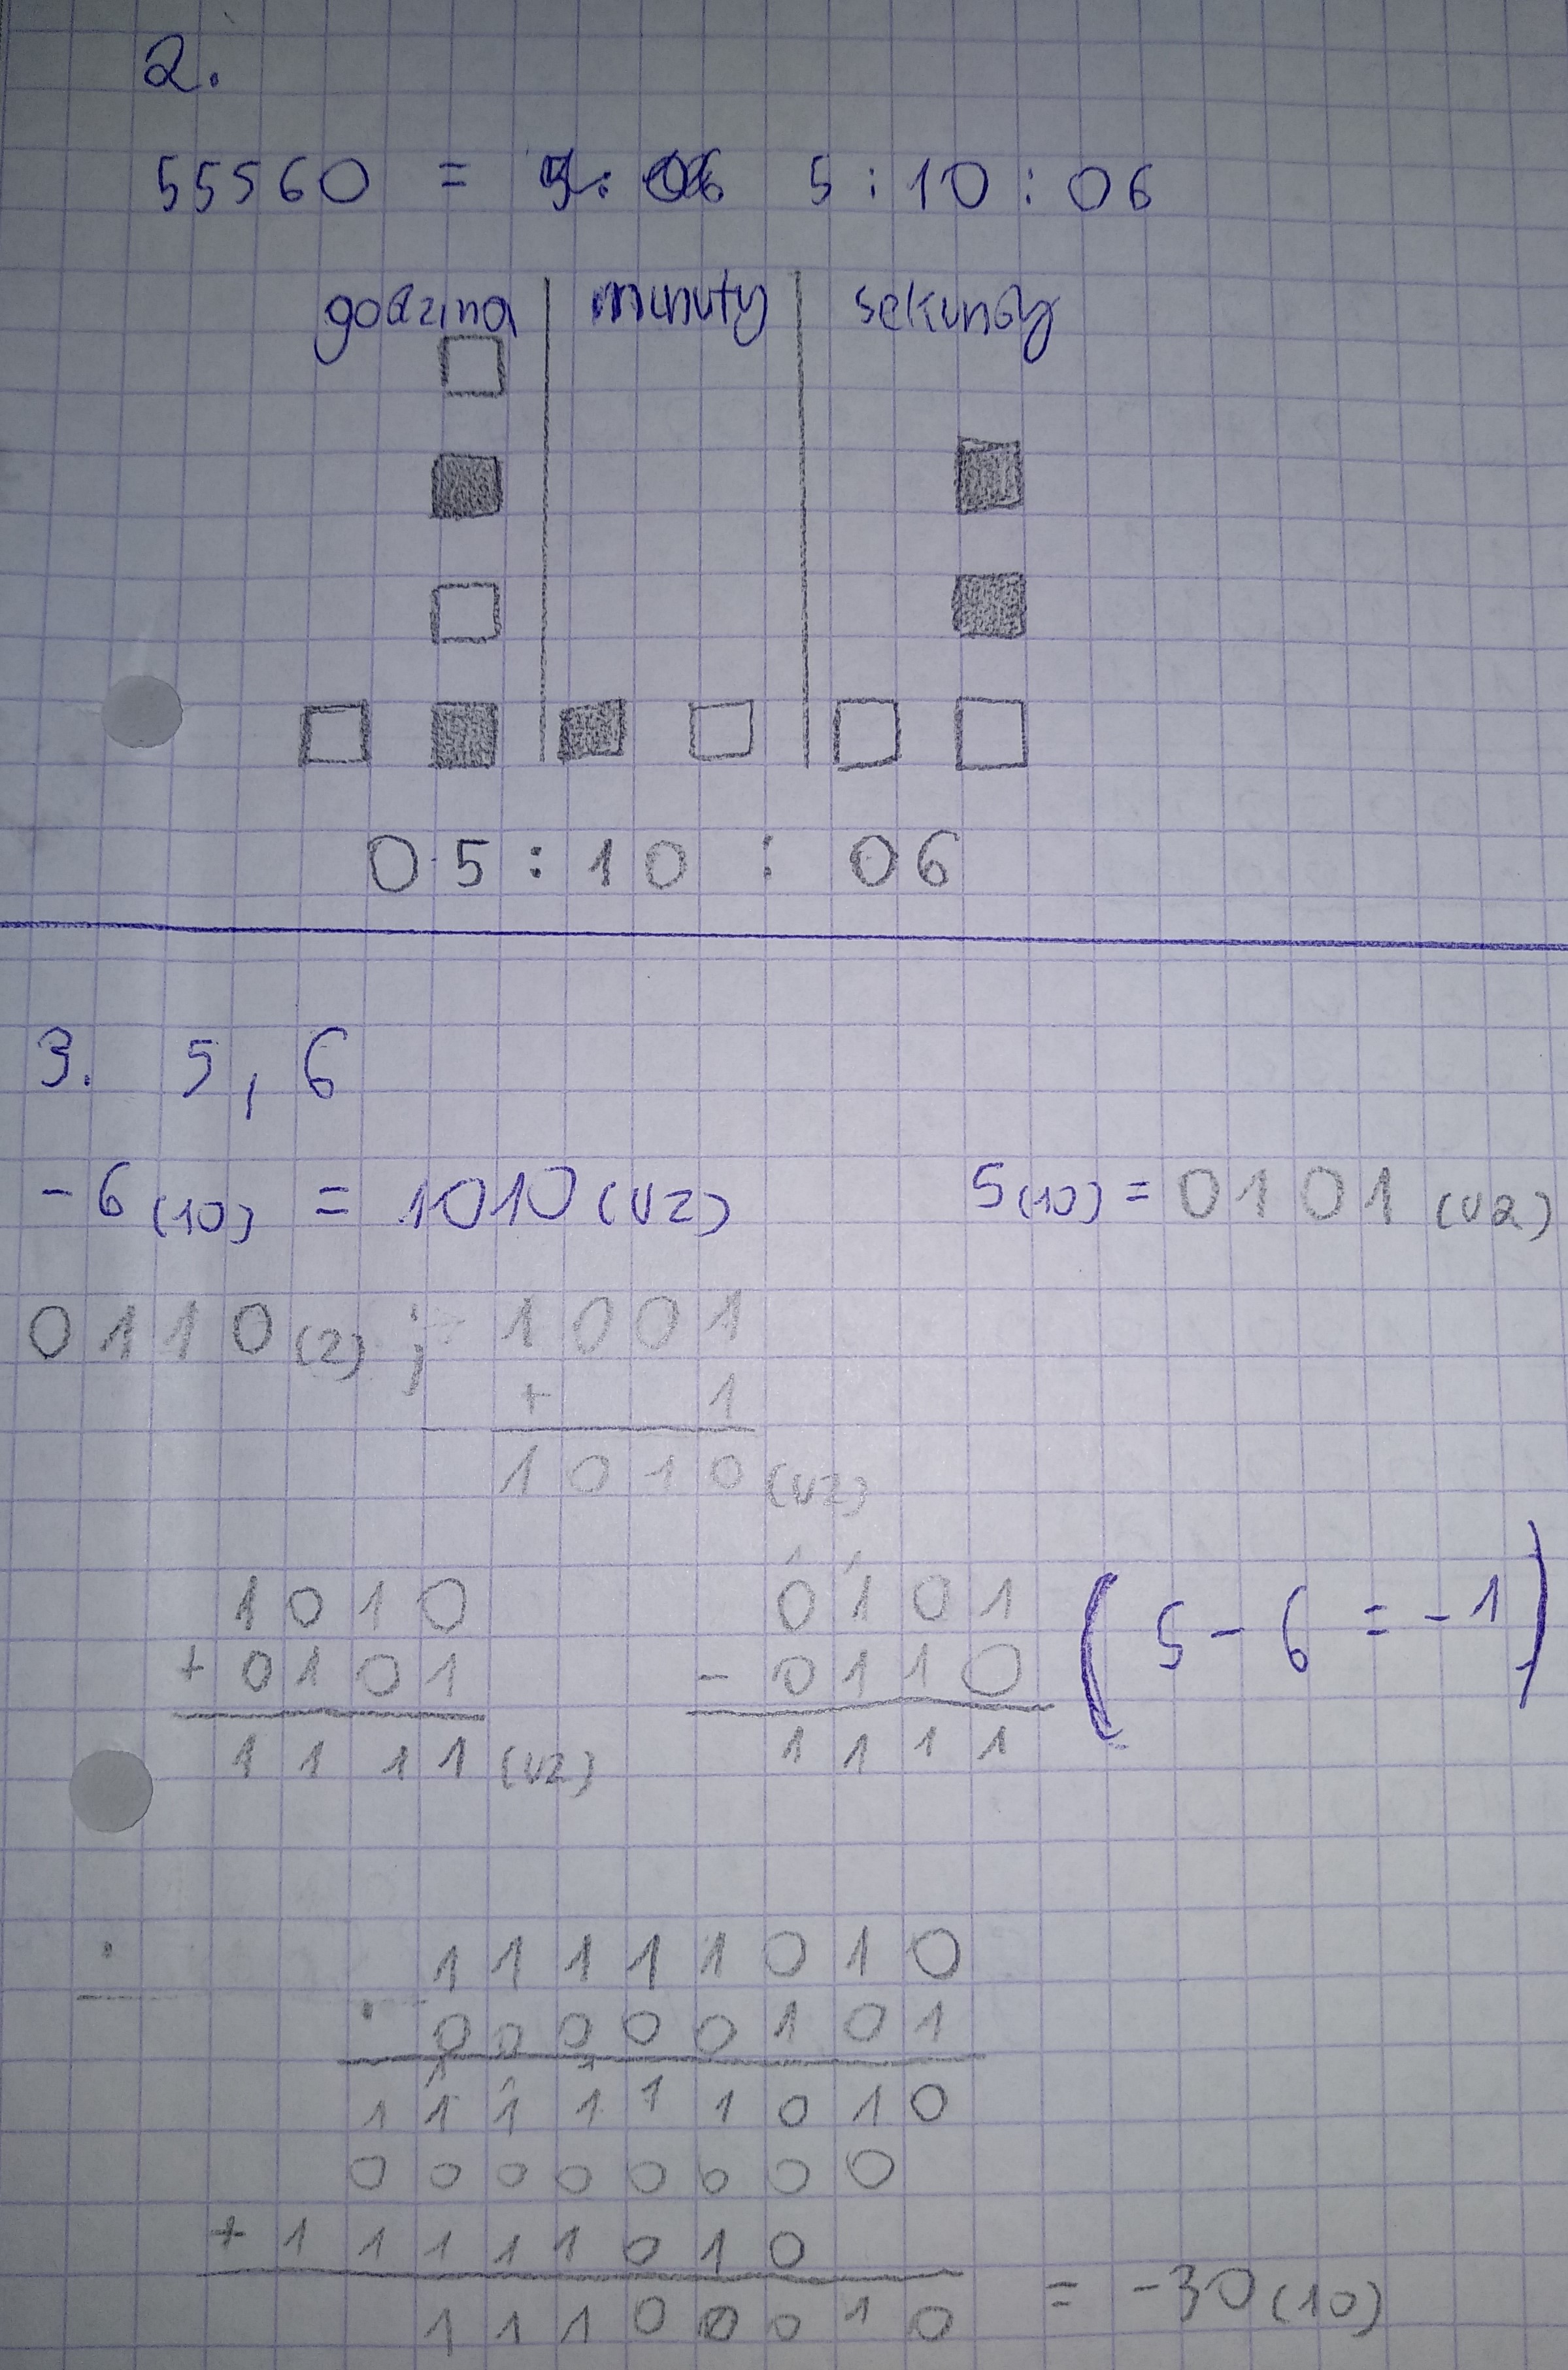 2.
55560 = 5:10:06
godzina minuty sekundy
05:10:06
3. 5, 6
-6(10) = 1010(U2) 5(10) = 0101(U2)
0110(2) ; 1001
+ 1
1010(U2)
1010 0101 (5-6=-1)
+ 0101 - 0110
1111(U2) 1111
11111010
· 00000101
111111010
00000000
+ 11111010
11100010 = -30(10)